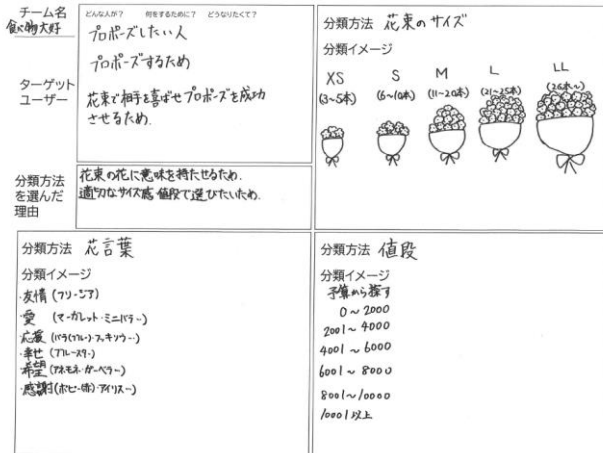 チーム名
食べ物大好
どんな人が？ 何をするために？ どうなりたくて？
ターゲット
ユーザー
プロポーズしたい人
プロポーズするため
花束で相手を喜ばせプロポーズを成功
させるため.
分類方法
を選んだ
理由
花束の花に意味を持たせるため.
適切なサイズ感 値段で選びたいため.
分類方法 花束のサイズ
分類イメージ
XS S M L LL
(3~5本) (6~10本) (11~20本) (21~25本) (26本~)
分類方法 花言葉
分類イメージ
・友情 (フリージア)
・愛 (マーガレット・ミニバラ…)
・応援 (バラ(ブルー)・フキソウ…)
・幸せ (ブルースター)
・希望 (アネモネ・ガーベラ…)
・感謝 (ポピー(赤)・アイリス…)
分類方法 値段
分類イメージ
予算から探す
0~2000
2001~4000
4001~6000
6001~8000
8001~10000
10001以上